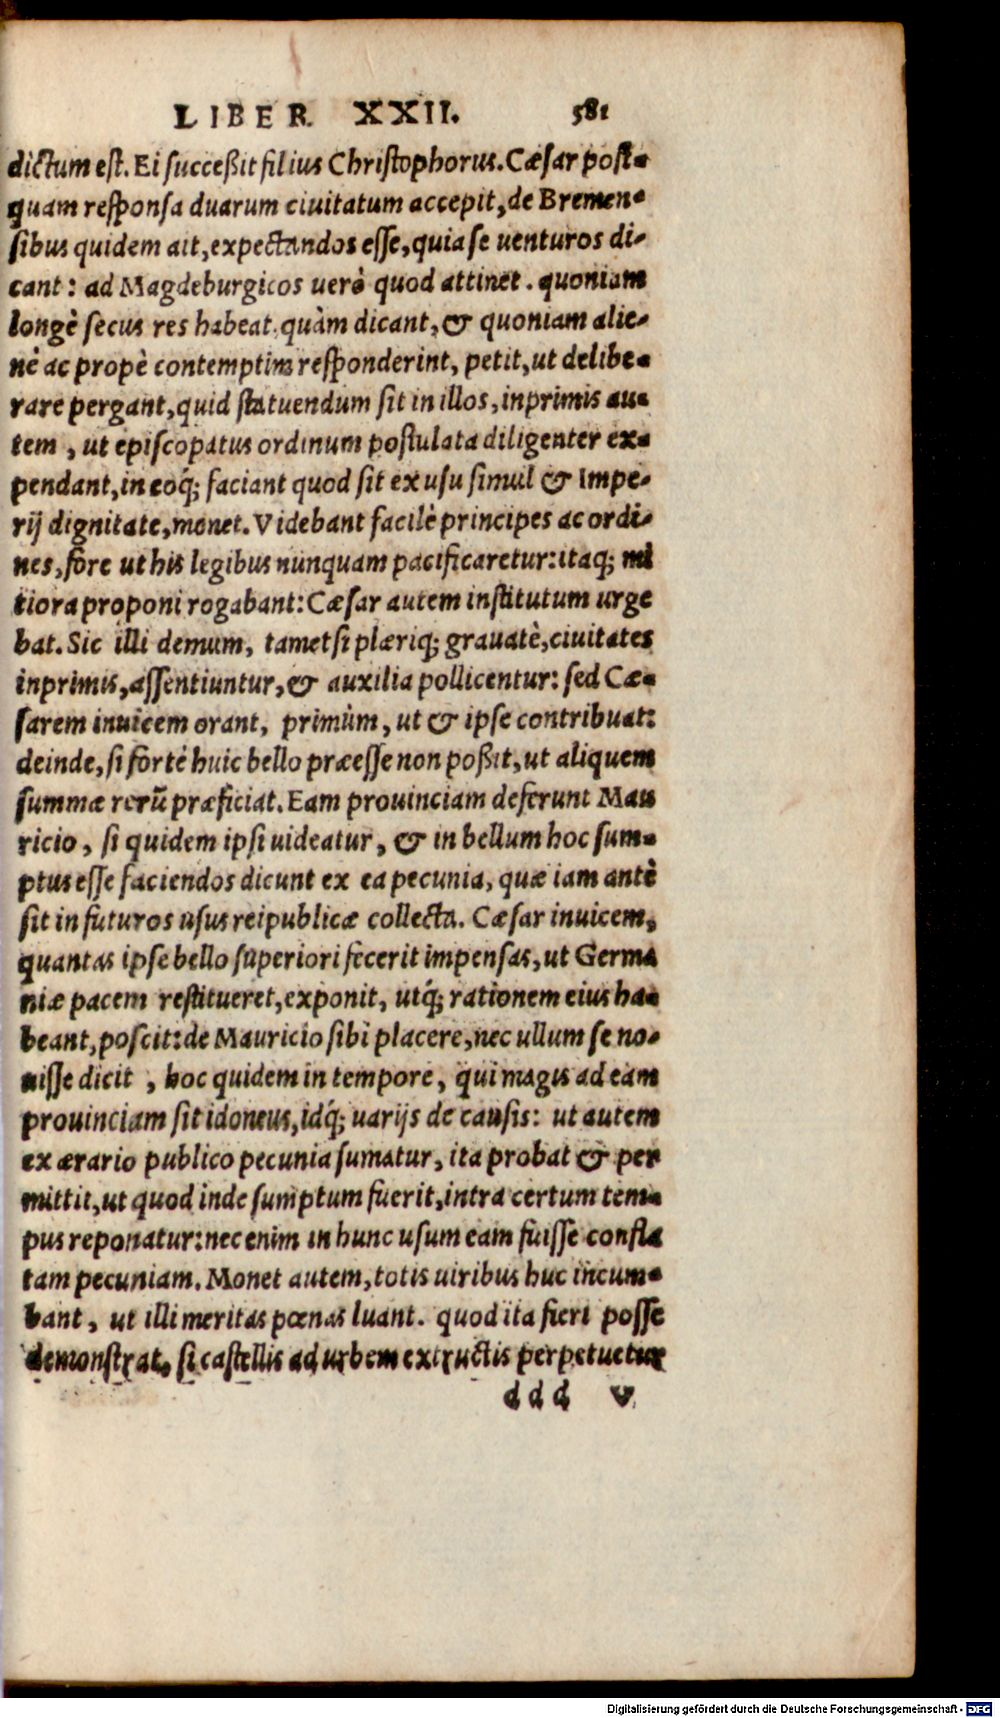 LIBER XXII. 581
dictum est. Ei succeßit filius Christophorus. Cæsar post-
quam responsa duarum ciuitatum accepit, de Bremen-
sibus quidem ait, expectandos esse, quia se uenturos di-
cant: ad Magdeburgicos uerò quod attinet. quoniam
longè secus res habeat quàm dicant, & quoniam alie-
nè ac propè contemptim responderint, petit, ut delibe-
rare pergant, quid statuendum sit in illos, inprimis au-
tem, ut episcopatus ordinum postulata diligenter ex-
pendant, in eoq́; faciant quod sit ex usu simul & Impe-
rij dignitate, monet. Videbant facilè principes ac ordi-
nes, fore ut his legibus nunquam pacificaretur: itaq; mi
tiora proponi rogabant: Cæsar autem institutum urge
bat. Sic illi demum, tametsi plæriq; grauatè, ciuitates
inprimis, assentiuntur, & auxilia pollicentur: sed Cæ-
sarem inuicem orant, primùm, ut & ipse contribuat:
deinde, si fortè huic bello præesse non poßit, ut aliquem
summæ rerū præficiat. Eam prouinciam deferunt Mau
ricio, si quidem ipsi uideatur, & in bellum hoc sum-
ptus esse faciendos dicunt ex ea pecunia, quæ iam antè
sit in futuros usus reipublicæ collecta. Cæsar inuicem,
quantas ipse bello superiori fecerit impensas, ut Germa
niæ pacem restitueret, exponit, utq́; rationem eius ha-
beant, poscit: de Mauricio sibi placere, nec ullum se no-
uisse dicit, hoc quidem in tempore, qui magis ad eam
prouinciam sit idoneus, idq́; uarijs de causis: ut autem
ex ærario publico pecunia sumatur, ita probat & per
mittit, ut quod inde sumptum fuerit, intra certum tem-
pus reponatur: nec enim in hunc usum eam fuisse confla
tam pecuniam. Monet autem, totis uiribus huc incum-
bant, ut illi meritas pœnas luant. quod ita fieri posse
demonstrat, si castellis ad urbem extructis perpetuetur
ddd v
Digitalisierung gefördert durch die Deutsche Forschungsgemeinschaft - DFG